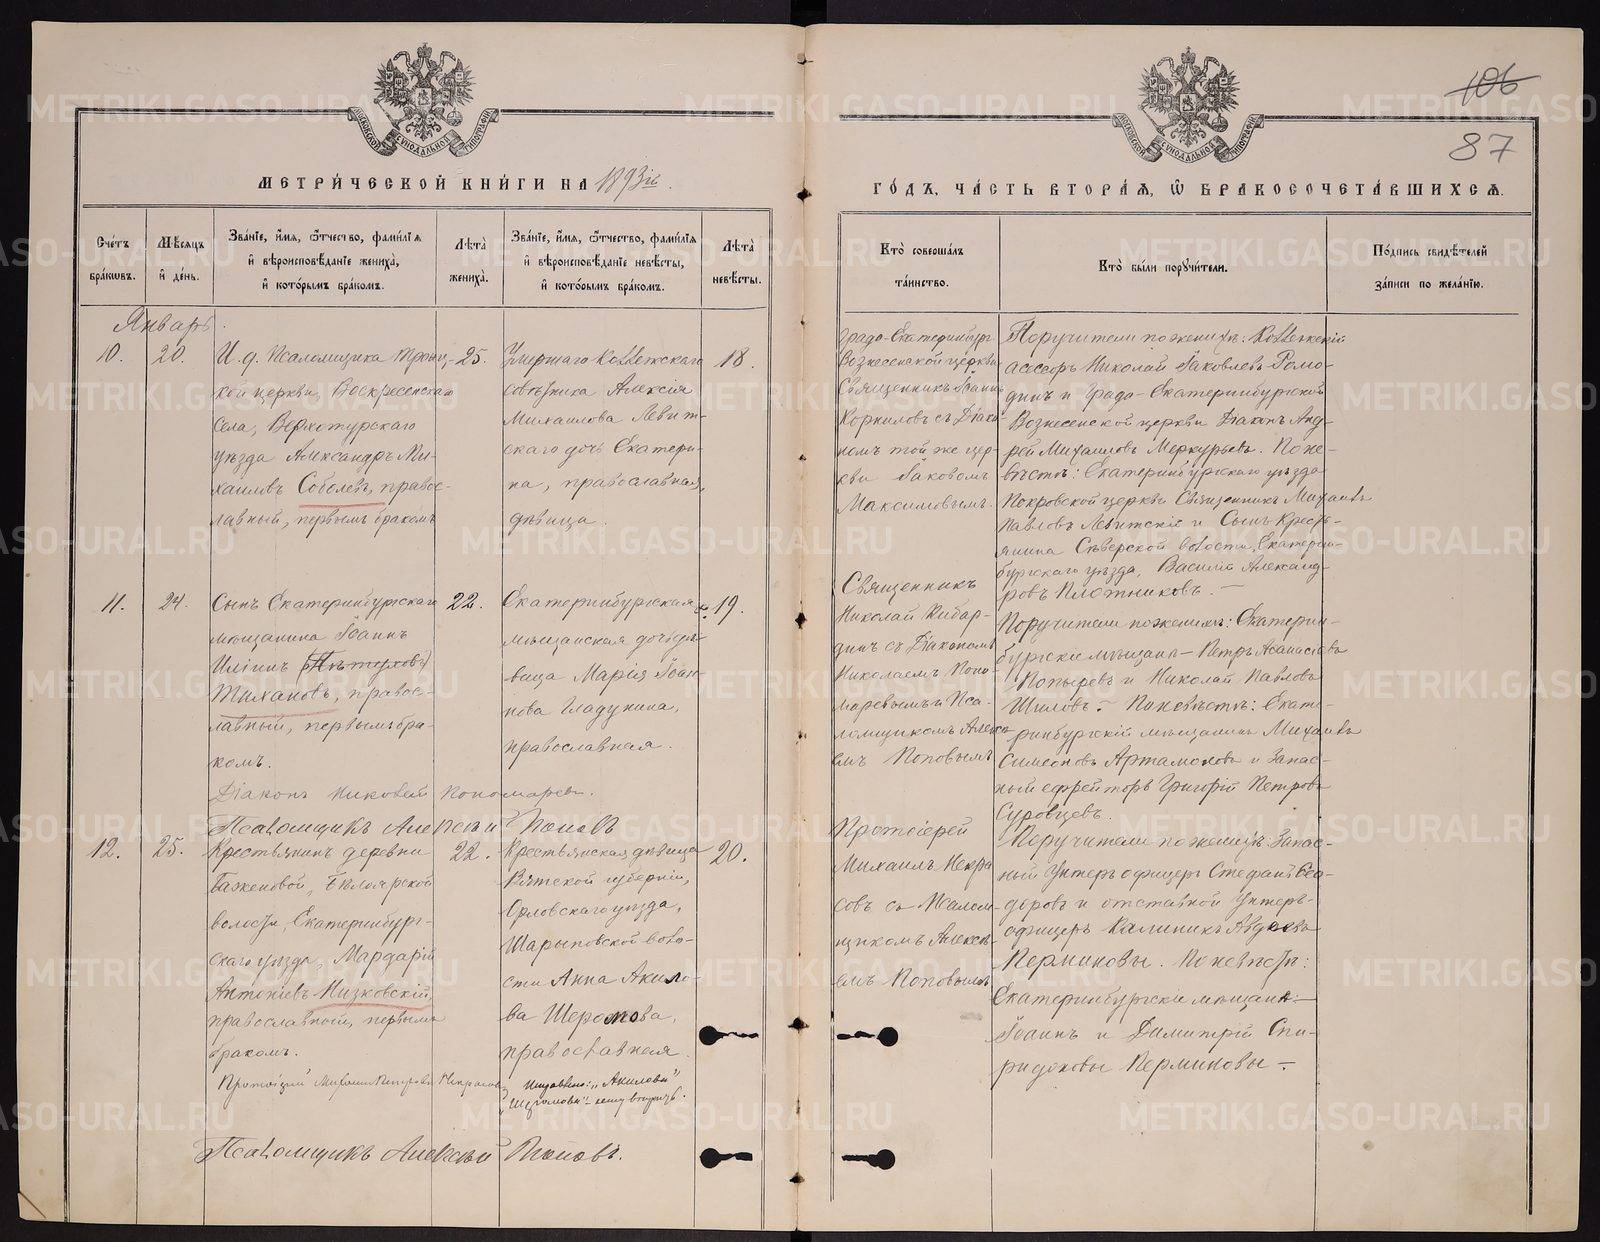 106
87
МОСКОВСКОЙ СѴНОДАЛЬНОЙ ТИПОГРАФІИ
МОСКОВСКОЙ СѴНОДАЛЬНОЙ ТИПОГРАФІИ
МЕТРИ́ЧЕСКОЙ КНИ́ГИ НА 1893й
ГО́ДЪ, ЧА́СТЬ ВТОРА́Я, Ѡ БРАКОСОЧЕТА́ВШИХСЯ.
Сче́тъ бра́кωвъ.
Мѣ́сяцъ и҆ де́нь.
Зва́нїе, и҆́мя, ѻ҆́тчество, фами́лїя и҆ вѣроисповѣ́данїе жениха̀, и҆ кото́рымъ бра́комъ.
Лѣ́та жениха̀.
Зва́нїе, и҆́мя, ѻ҆́тчество, фами́лїя и҆ вѣроисповѣ́данїе невѣ́сты, и҆ кото́рымъ бра́комъ.
Лѣ́та невѣ́сты.
Кто̀ соверша́лъ та́инство.
Кто̀ бы́ли порꙋчи́тели.
По́дпись свидѣ́телей за́писи по жела́нїю.
Январь.
10.
20.
И. д. Псаломщика Троиц-
кой церкви, Воскресенскаго
села, Верхотурскаго
уѣзда Александръ Ми-
хаиловъ Соболевъ, правос-
лавный, первымъ бракомъ
25.
Умершаго Коллежскаго
совѣтника Алексія
Михаилова Левит-
скаго дочь Екатери-
на, православная,
дѣвица.
18.
Градо-Екатеринбург.
Вознесенской церкви
Священникъ Іоаннъ
Корниловъ съ Діако-
номъ той же цер-
кви Іаковомъ
Максимовымъ.
Поручители по женихѣ: Коллежскій
асессоръ Николай Іаковлевъ Ромо-
динъ и Градо-Екатеринбургской
Вознесенской церкви Діаконъ Анд-
рей Михаиловъ Меркурьевъ. По не-
вѣстѣ: Екатеринбургскаго уѣзда
Покровской церкви Священникъ Михаилъ
Павловъ Левитскій и Сынъ Кресть-
янина Сѣверской волости, Екатерин-
бургскаго уѣзда, Василій Александ-
ровъ Плотниковъ.
11.
24.
Сынъ Екатеринбургскаго
мѣщанина Іоаннъ
Иліинъ (Пѣтуховъ)
Тихановъ, правос-
лавный, первымъ бра-
комъ.
22.
Екатеринбургская
мѣщанская дочь дѣ-
вица Марія Іоан-
нова Гладунина,
православная.
19.
Священникъ
Николай Кибар-
динъ съ Діакономъ
Николаемъ Поно-
маревымъ и Пса-
ломщикомъ Алексѣ-
емъ Поповымъ
Поручители по женихѣ: Екатерин-
бургскіе мѣщане – Петръ Аѳанасіевъ
Попыревъ и Николай Павловъ
Шиловъ. – По невѣстѣ: Екате-
ринбургскій мѣщанинъ Михаилъ
Симеоновъ Артамоновъ и Запас-
ный ефрейторъ Григорій Петровъ
Суровцевъ.
Діаконъ Николай Пономаревъ.
Псаломщикъ Алексѣй Поповъ
12.
25.
Крестьянинъ деревни
Баженовой, Бѣлоярской
волости, Екатеринбург-
скаго уѣзда, Мардарій
Антоніевъ Низковскій,
православный, первымъ
бракомъ.
22.
Крестьянская дѣвица
Вятской губерніи,
Орловскаго уѣзда,
Шарыповской воло-
сти Анна Акило-
ва Шеромова,
православная.
20.
Протоіерей
Михаилъ Некра
совъ съ Псалом-
щикомъ Алексѣ-
емъ Поповымъ
Поручители по женихѣ: Запас-
ный Унтеръ офицеръ Стефанъ Ѳео-
доровъ и отставной Унтеръ-
офицеръ Калиникъ Авдеевъ
Перминовы. По невѣстѣ:
Екатеринбургскіе мѣщане –
Іоаннъ и Димитрій Спи-
ридоновы Перминовы –
Протоіерей Михаилъ Петровъ Некрасовъ
Исправлено: „Акилова"
Псаломщикъ Алексѣй Поповъ.
METRIKI.GASO-URAL.RU